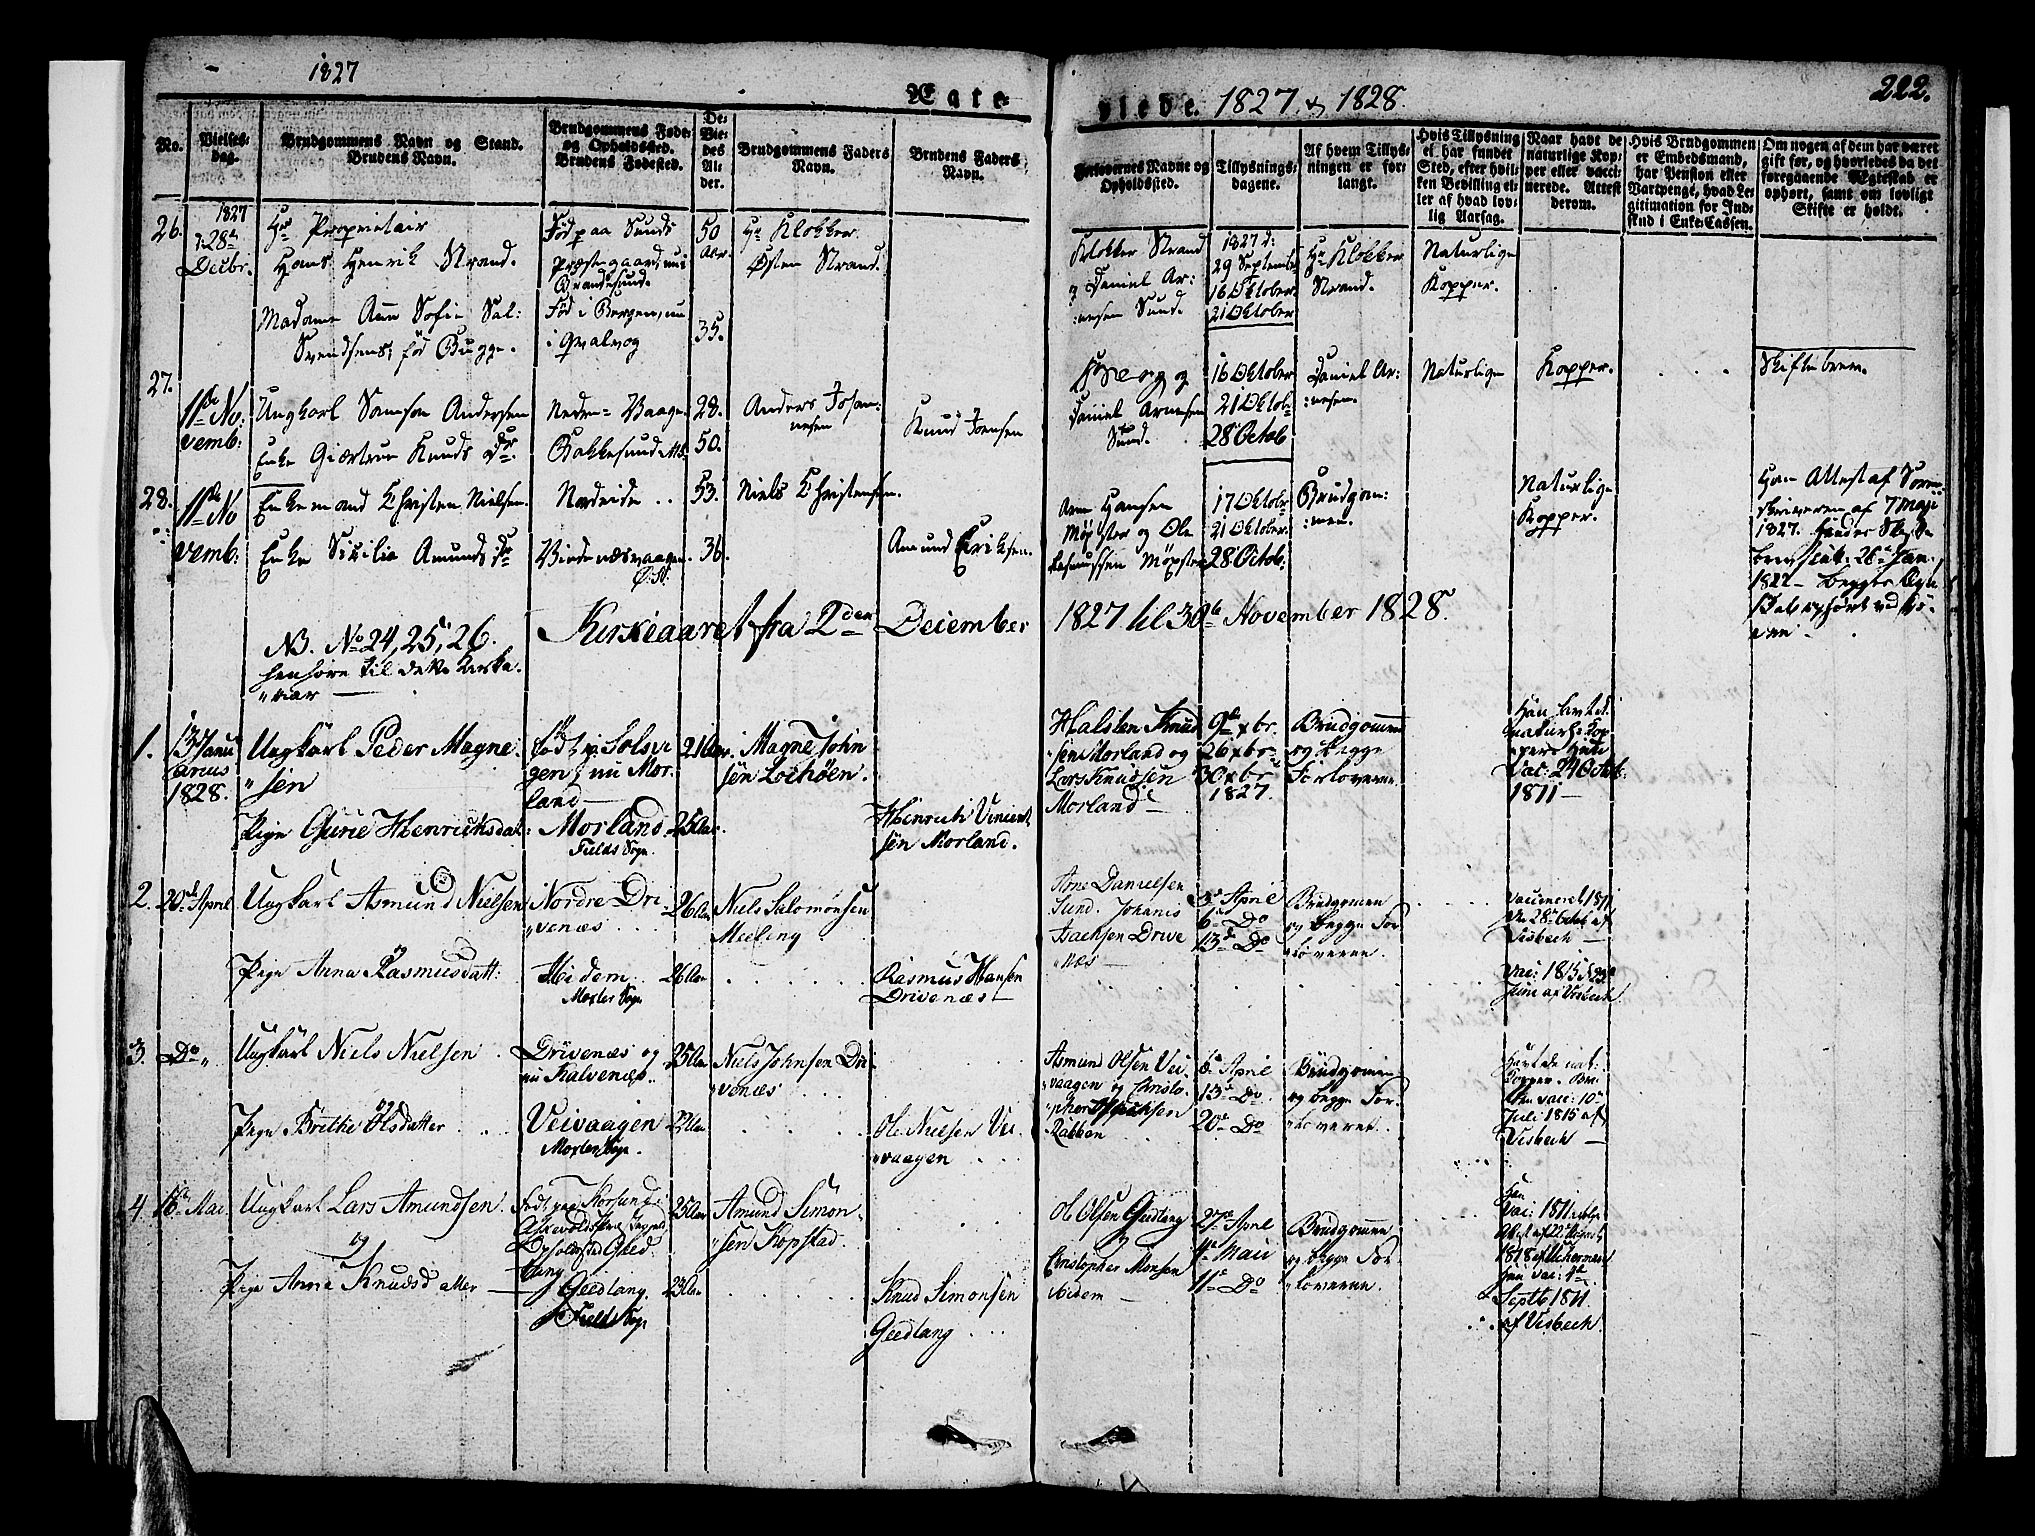 1827
Ægte-
viede. 1827 & 1828.
222.
No.
Vielses-
dag.
Brudgommens Navn og Stand.
Brudens Navn.
Brudgommens Føde-
og Opholdssted.
Brudens Fødested.
De
Vie-
des
Al-
der.
Brudgommens Faders
Navn.
Brudens Faders
Navn.
Forlovernes Navne og
Opholdssted.
Tillysnings-
dagene.
Af hvem Tillys-
ningen er for-
langt.
Hvis Tillysning
ei har fundet
Sted, efter hvil-
ken Bevilling el-
ler af hvad lov-
lig Aarsag.
Naar havt de
naturlige Kop-
per eller vacci-
nerede. Attest
derom.
Hvis Brudgommen
er Embedsmand,
har Pension eller
Vartpenge, hvad Le-
gitimation for Ind-
skud i Enke-Cassen.
Om nogen af dem har været
gift før, og hvorledes da det
foregaaende Ægteskab er
ophørt, samt om lovligt
Skifte er holdt.
26.
1827
d: 28de
Decbr.
Hr Proprietair
Hans Henrik Strand.
Madame Ann Sofie Sal:
Svendsens, fød Bugge.
Fød paa Sunds
Præstegaard, nu
Brandesund.
Fød i Bergen, nu
i Qvalvog
50
Aar.
35.
Hr Klokker
Østen Strand.
Klokker Strand
og Daniel Ar:
:nesen Sund.
1827 d:
29 Septemb:
16 Oktober.
21 Oktober
Hr Klokker
Strand.
Naturlige
Kopper.
27.
11te No:
vemb:
Ungkarl Samson Andersen
Enke Giertrue Knuds Dr.
Neden- Vaage
Bakkesund
28.
50.
Anders Johan-
nesen
Knud Joensen
og
Daniel Arnesen
Sund.
16 Oktober
21 Oktobr
28 Octob
Daniel Ar:
:nesen.
Naturlige
Kopper.
Skiftebrev.
28.
11te No
vemb:
Enkemand Christen Nielsen.
Enke Sicilia Amunds Dr
Nordeide . .
Vindenæsvaagen.
53.
36.
Niels Christensen.
Amund Eriksen.
Arn Hansen
Møgster og Ole
Rasmussen Møgster
17 Oktobr
21 Oktober.
28 Octob:
Brudgom:
:men.
Naturlige
Kopper.
Ham Attest af Soren-
skriveren af 7 Maji
1827. Hendes Skifte
brev dat: 26de Jan.
1827 — begges Ægte
NB. No 24, 25, 26.
henhøre til dette Kirke-
"aar —
Kirkeaaret fra 2den December
1827 til 30te November 1828.
1.
13 Janu
arius
1828.
Ungkarl Peder Magne-
"sen
Pige Gurie Henrichsdat:
Født p: Solsvi
gen, nu Mor-
land —
Morland
Fields Sogn.
21 Aar.
25 Aar.
Magne John
sen Lochøen.
Henrich Vincent
sen Morland.
Halsten Knud
"sen Morland og
Lars Knudsen
Morland —
9de xbr.
26 xbr
30 xbr
1827.
Brudgommen
og begge
Forloverne
Han havt de
naturl: Kop
per Hun
Vac: 24 Octob:
1811 —
2.
20de April
Ungkarl Asmund Nielsen
og
Pige Anna Rasmusdatt:
Nordre Dri
"venæs . .
Heidem.
Moster Sogn
26 Aar
26 Aar
Niels Salomonsen
Meeling
Rasmus Hansen
Drivenæs —
Arne Danielsen
Sund. Johanis
Isachsen Drive
"næs —
3de April
6te Do
13de Do
Brudgomen
og begge For
"loverne.
Vaccineret 1811
den 28de Octob af
Visbech —
Vac: 1815 d 23de
Juni af Visbech
3.
Do "
Ungkarl Niels Nielsen
og
Pige Brithe Olsdatter
Drivenæs og
nu Kalvenæs.
Veivaagen
Moster Sogn.
25 Aar
22 Aar
Niels Johnsen Dri-
"venæs
Ole Nielsen Vei
"vaagen
Asmund Olsen Vei-
"vaagen og Christo-
"pher Isachsen
Rabben
6te April
13de Do
20de Do
Brudgomen
og begge For-
"loveret.
Han de nat:
Kopper. Bru
den vac: 10de
Juli 1815 af
Visbech —
4.
16de Mai.
Ungkarl Lars Amundsen.
og
Pige Anna Knudsdatter —
Født paa Korssund i
Askevolds Præstegield
Opholdssted Gied-
tang
Giedtang.
Fields Sogn
25 Aar
23 Aar
Amund Simon-
"sen Kopstad.
Knud Simonsen
Giedtang . . .
Ole Olsen Giedtang
og
Christopher Monsen
ibidem —
27de April
4de Maii
11te Do
Brudgomen
og begge For-
"loverne.
Han
Vac: 1811 ifølge
Attest af 22 August
1818 af Ucherman
Hun vac: 1ste
Septb 1811
af Visbech.